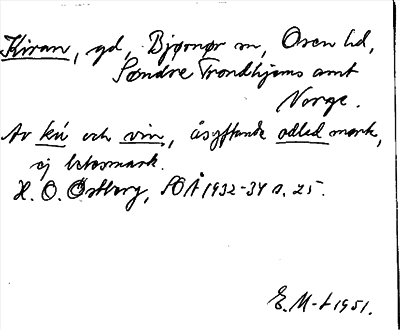 Kiran, gd, Bjønør sn, Osen hd,
Søndre Trondhjems amt
Norge.
Av kú och vin, åsyftande odlad mark,
ej betesmark.
H. O. Østberg, SOÅ 1932-34 s. 25.
E. M-t 1951.